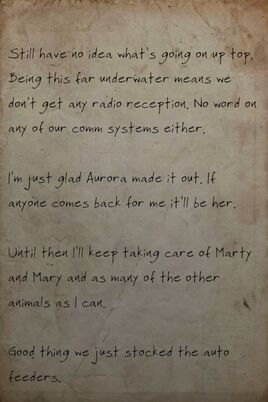 Still have no idea what's going on up top.
Being this far underwater means we
don't get any radio reception. No word on
any of our comm systems either.
I'm just glad Aurora made it out. If
anyone comes back for me it'll be her.
Until then I'll keep taking care of Marty
and Mary and as many of the other
animals as I can.
Good thing we just stocked the auto
feeders.